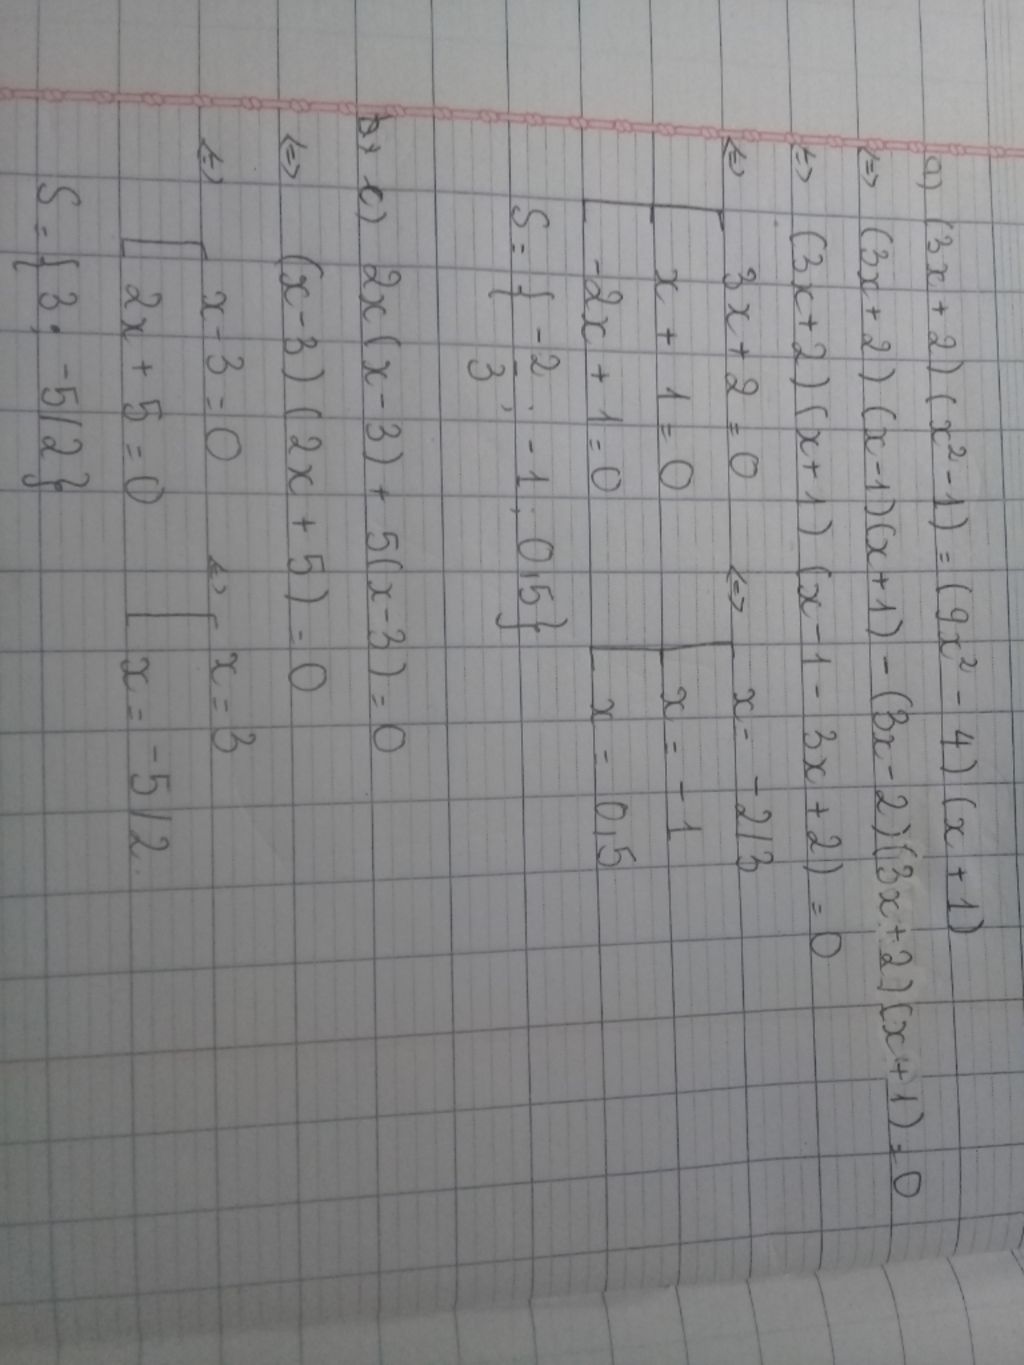 a) (3x+2)(x²-1) = (9x²-4)(x+1)
<=> (3x+2)(x-1)(x+1) - (3x-2)(3x+2)(x+1) = 0
<=> (3x+2)(x+1)(x-1-3x+2) = 0
<=> [ 3x+2=0 <=> [ x = -2/3
x+1=0 x = -1
-2x+1=0 x = 0,5
S = { -2/3 ; -1 ; 0,5 }
c) 2x(x-3) + 5(x-3) = 0
<=> (x-3)(2x+5) = 0
<=> [ x-3=0 <=> [ x = 3
2x+5=0 x = -5/2
S = { 3 ; -5/2 }